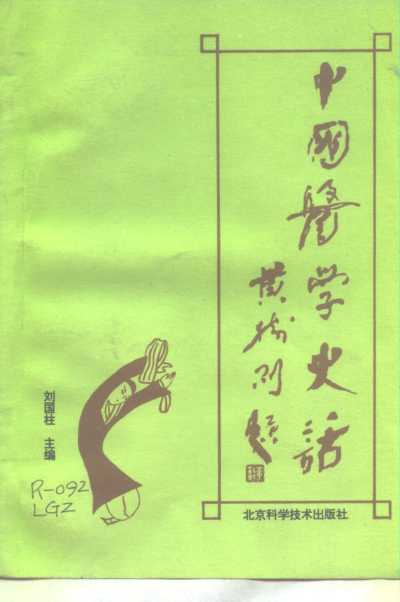 中國醫学史话
黄树则题
刘国柱 主编
R-092
LGZ
北京科学技术出版社